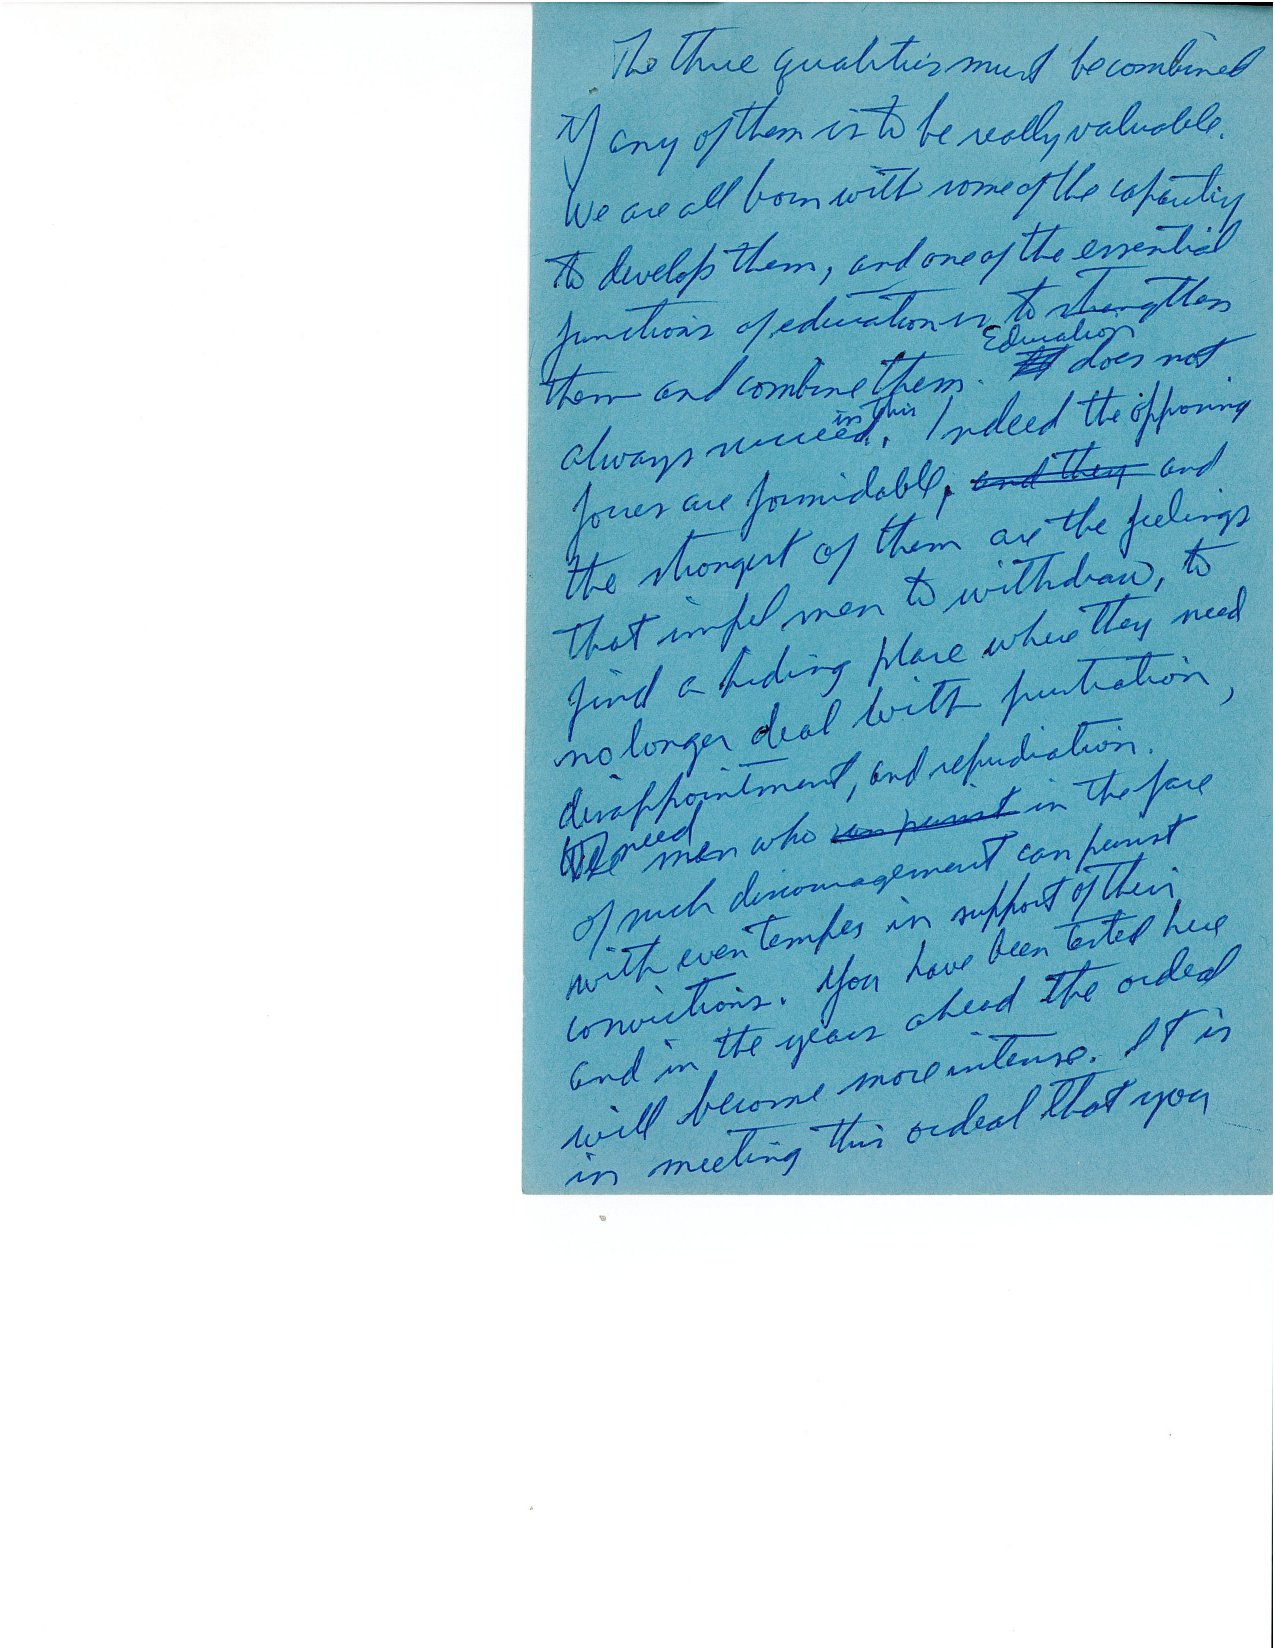 The three qualities must be combined
if any of them is to be really valuable.
We are all born with some of the capacity
to develop them, and one of the essential
functions of education is to strengthen
them and combine them. Education does not
always succeed in this. Indeed the opposing
forces are formidable, and they and
the strongest of them are the feelings
that impel men to withdraw, to
find a hiding place where they need
no longer deal with frustration,
disappointment, and repudiation.
We need men who can persist in the face
of such discouragement can persist
with even temper in support of their
convictions. You have been tested here
and in the years ahead the ordeal
will become more intense. It is
in meeting this ordeal that you